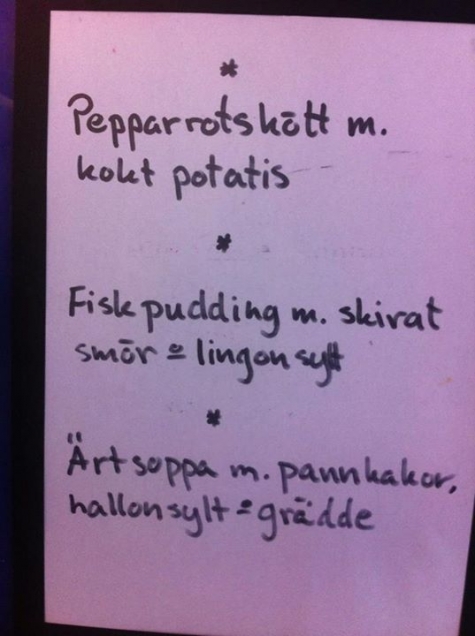 *
Pepparrotskött m.
kokt potatis
*
Fiskpudding m. skirat
smör o lingonsylt
*
Ärtsoppa m. pannkakor,
hallonsylt o grädde